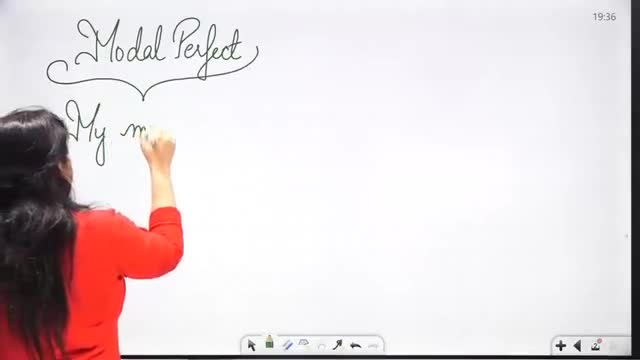 19:36
Modal Perfect
My m